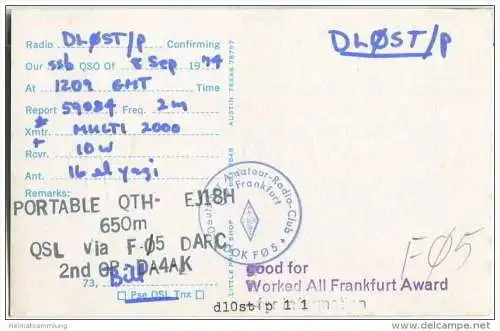 Radio DLØST/p Confirming
DLØST/p
Our ssb QSO Of 8 Sep 1974
At 1209 GMT Time
Report 59004 Freq. 2m
Xmtr. MULTI 2000
Rcvr. 10W
Ant. 16 el yagi
Remarks:
PORTABLE QTH- EJ18H
650m
QSL Via F-Ø5 DARC
2nd OP-DA4AK
73, Bill
Pse QSL Tnx
AUSTIN TEXAS 78757
LITTLE PRINT SHOP
Deutscher Amateur-Radio-Club
Frankfurt
DOK FØ5
FØ5
good for
Worked All Frankfurt Award
dl0st/p